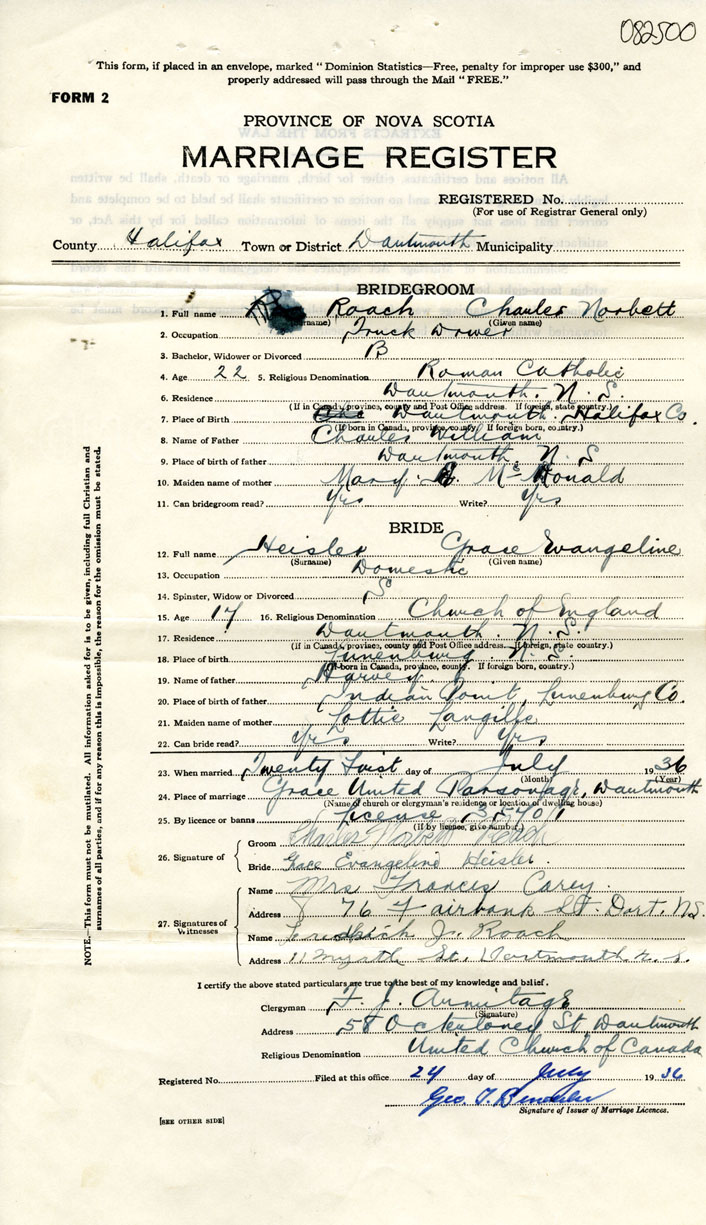 082500
This form, if placed in an envelope, marked "Dominion Statistics—Free, penalty for improper use $300," and
properly addressed will pass through the Mail "FREE."
FORM 2
PROVINCE OF NOVA SCOTIA
MARRIAGE REGISTER
REGISTERED No.
(For use of Registrar General only)
County Halifax Town or District Dartmouth Municipality
BRIDEGROOM
1. Full name Roach Charles Norbett
(Surname) (Given name)
2. Occupation Truck Driver
3. Bachelor, Widower or Divorced B
4. Age 22 5. Religious Denomination Roman Catholic
6. Residence Dartmouth. N. S.
(If in Canada, province, county and Post Office address. If foreign, state country.)
7. Place of Birth Dartmouth Halifax Co.
(If born in Canada, province, county. If foreign born, country.)
8. Name of Father Charles William
9. Place of birth of father Dartmouth, N. S
10. Maiden name of mother Mary McDonald
11. Can bridegroom read? Yes Write? Yes
BRIDE
12. Full name Heisler Grace Evangeline
(Surname) (Given name)
13. Occupation Domestic
14. Spinster, Widow or Divorced S
15. Age 17 16. Religious Denomination Church of England
17. Residence Dartmouth. N. S.
(If in Canada, province, county and Post Office address. If foreign, state country.)
18. Place of birth Lunenburg N. S.
(If born in Canada, province, county. If foreign born, country.)
19. Name of father Harvey
20. Place of birth of father Indian Point, Lunenburg Co.
21. Maiden name of mother Lottie Langille
22. Can bride read? Yes Write? Yes
23. When married Twenty First day of July 1936
(Month) (Year)
24. Place of marriage Grace United Parsonage, Dartmouth
(Name of church or clergyman's residence or location of dwelling house)
25. By licence or banns License
(If by licence, give number.)
26. Signature of
Groom Charles Norbett Roach
Bride Grace Evangeline Heisler.
27. Signatures of Witnesses
Name Mrs Frances Carey.
Address 76 Fairbank St. Dart. N.S.
Name Roach
Address St. Dartmouth N. S.
I certify the above stated particulars are true to the best of my knowledge and belief.
Clergyman F. J. Armitage
(Signature)
Address 58 Ochterloney St Dartmouth
Religious Denomination United Church of Canada
Registered No. Filed at this office 24 day of July 1936
Geo.
Signature of Issuer of Marriage Licences.
[SEE OTHER SIDE]
NOTE.—This form must not be mutilated. All information asked for is to be given, including full Christian and
surnames of all parties, and if for any reason this is impossible, the reason for the omission must be stated.